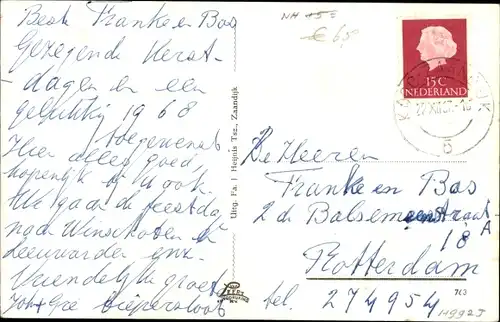 Beste Franke en Bas
Gezegende Kerst-
dagen en een
gelukkig 1968
toegewenst
Hier alles goed
hopelijk bij U ook.
We gaan de feestdag
naar Winschoten &
Leeuwarden enz.
Vriendelijke groet
Joh + Gré Diepersloot
NH
€ 6,50
15C
NEDERLAND
Uitg. Fa. J Heijnis Tsz., Zaandijk
De Heeren
Franke en Bas
2de Balsemienstraat
18 A
Rotterdam
tel. 274954
763
H992J